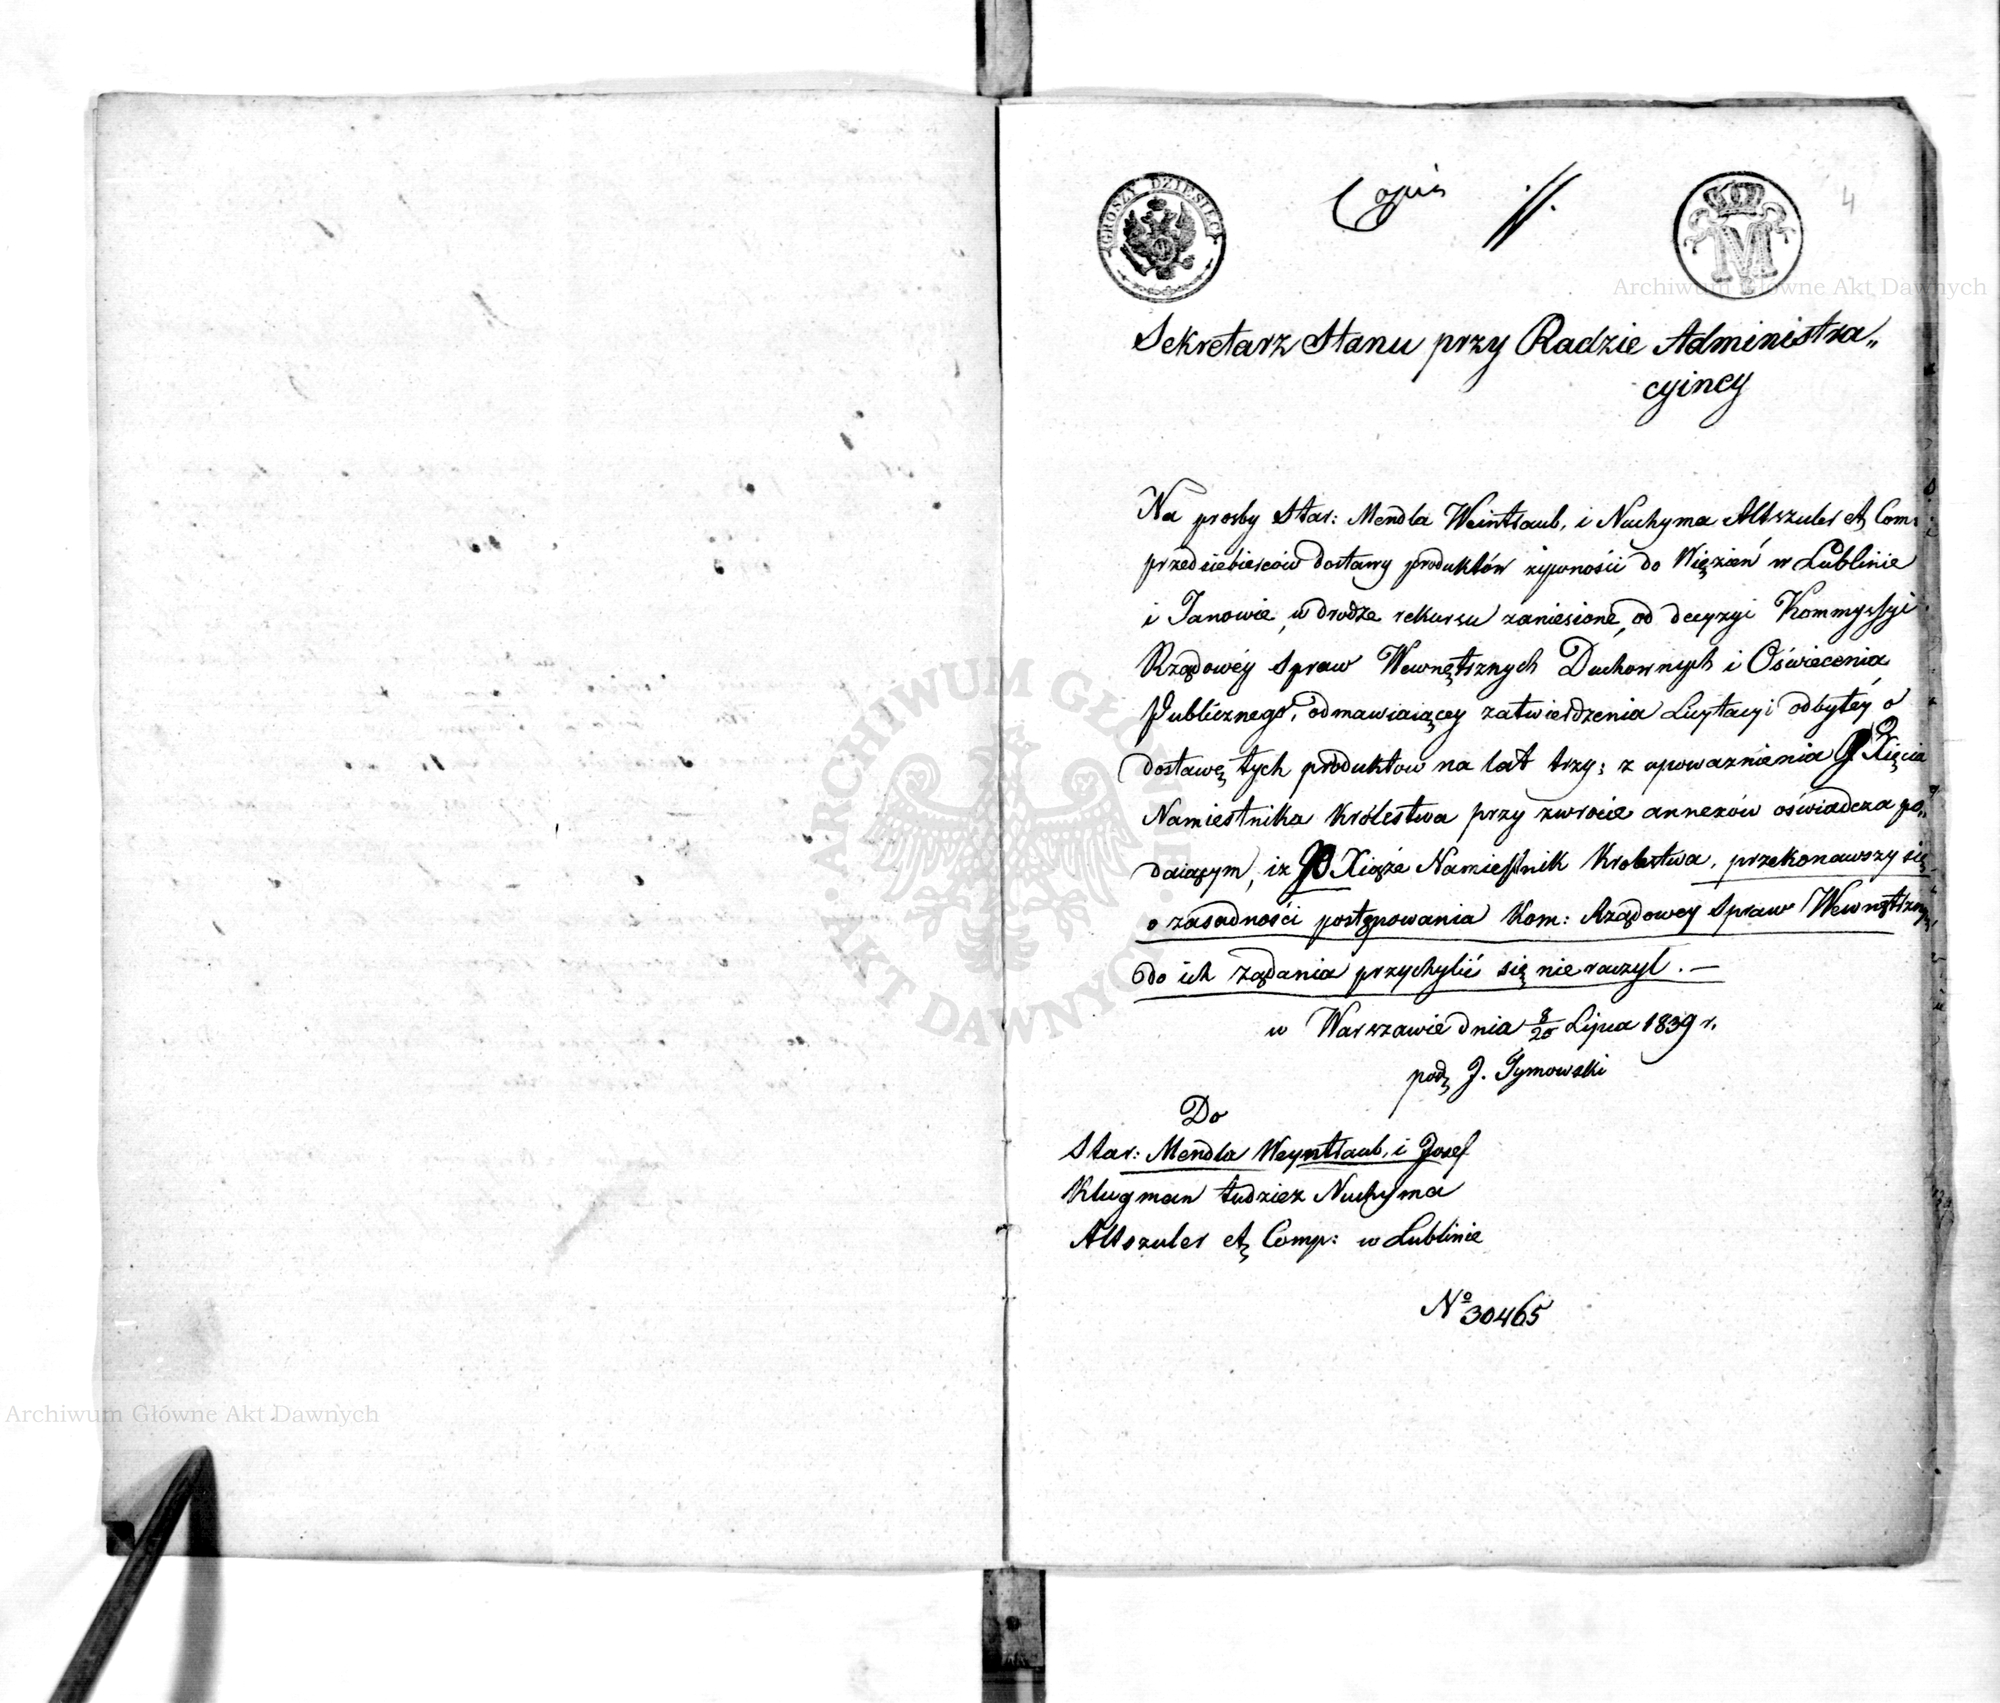 Copia
GROSZY DZIESIĘĆ
M
4
Sekretarz Stanu przy Radzie Administra„
cyiney
Na prosby Star: Mendla Weintraub, i Nuchyma Altszuler et Com:
przedsiebierców dostawy produktów żywności do Więzień w Lublinie
i Janowie, w drodze rekursu zaniesione, od decyzyi Kommyssyi
Rządowéy Spraw Wewnętrznych Duchownych i Oświecenia
Publicznego, odmawiaiącey zatwierdzenia Licytacyi odbytéy o
dostawę tych produktow na lat trzy; z upoważnienia JO Xięcia
Namiestnika Królestwa przy zwrocie annexów oświadcza po„
daiącym, iz JO Xiąże Namiestnik Krolestwa, przekonawszy się
o zasadności postępowania Kom: Rządowey Spraw Wewnętrzny
do ich żądania przychylić się nie raczył. —
w Warszawie dnia 8/20 Lipca 1839 r.
podę J. Tymowski
Do
Star: Mendla Weyntraub, i Josef
Klugman tudziez Nuchyma
Altszuler et Comp: w Lublinie
No 30465
Archiwum Główne Akt Dawnych
ARCHIWUM GŁÓWNE AKT DAWNYCH
Archiwum Główne Akt Dawnych